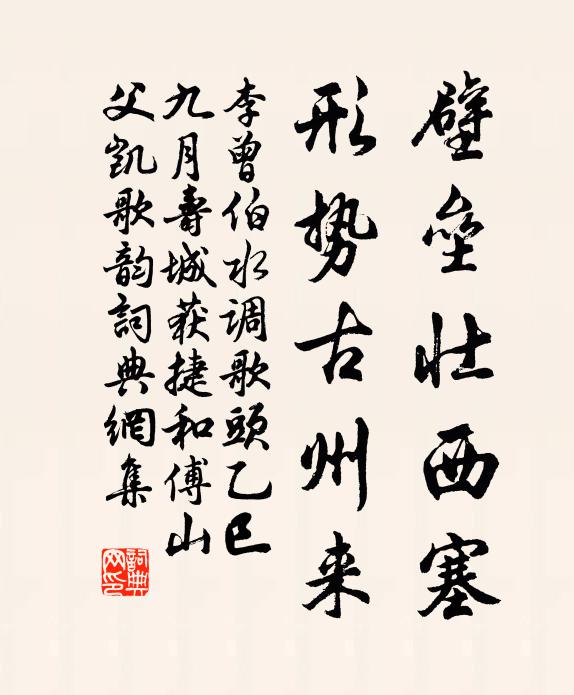 壁垒壮西塞
形势古州来
李曾伯水调歌頭乙巳
九月壽城获捷和傅山
父凯歌韵詞典網集
詞典
网印